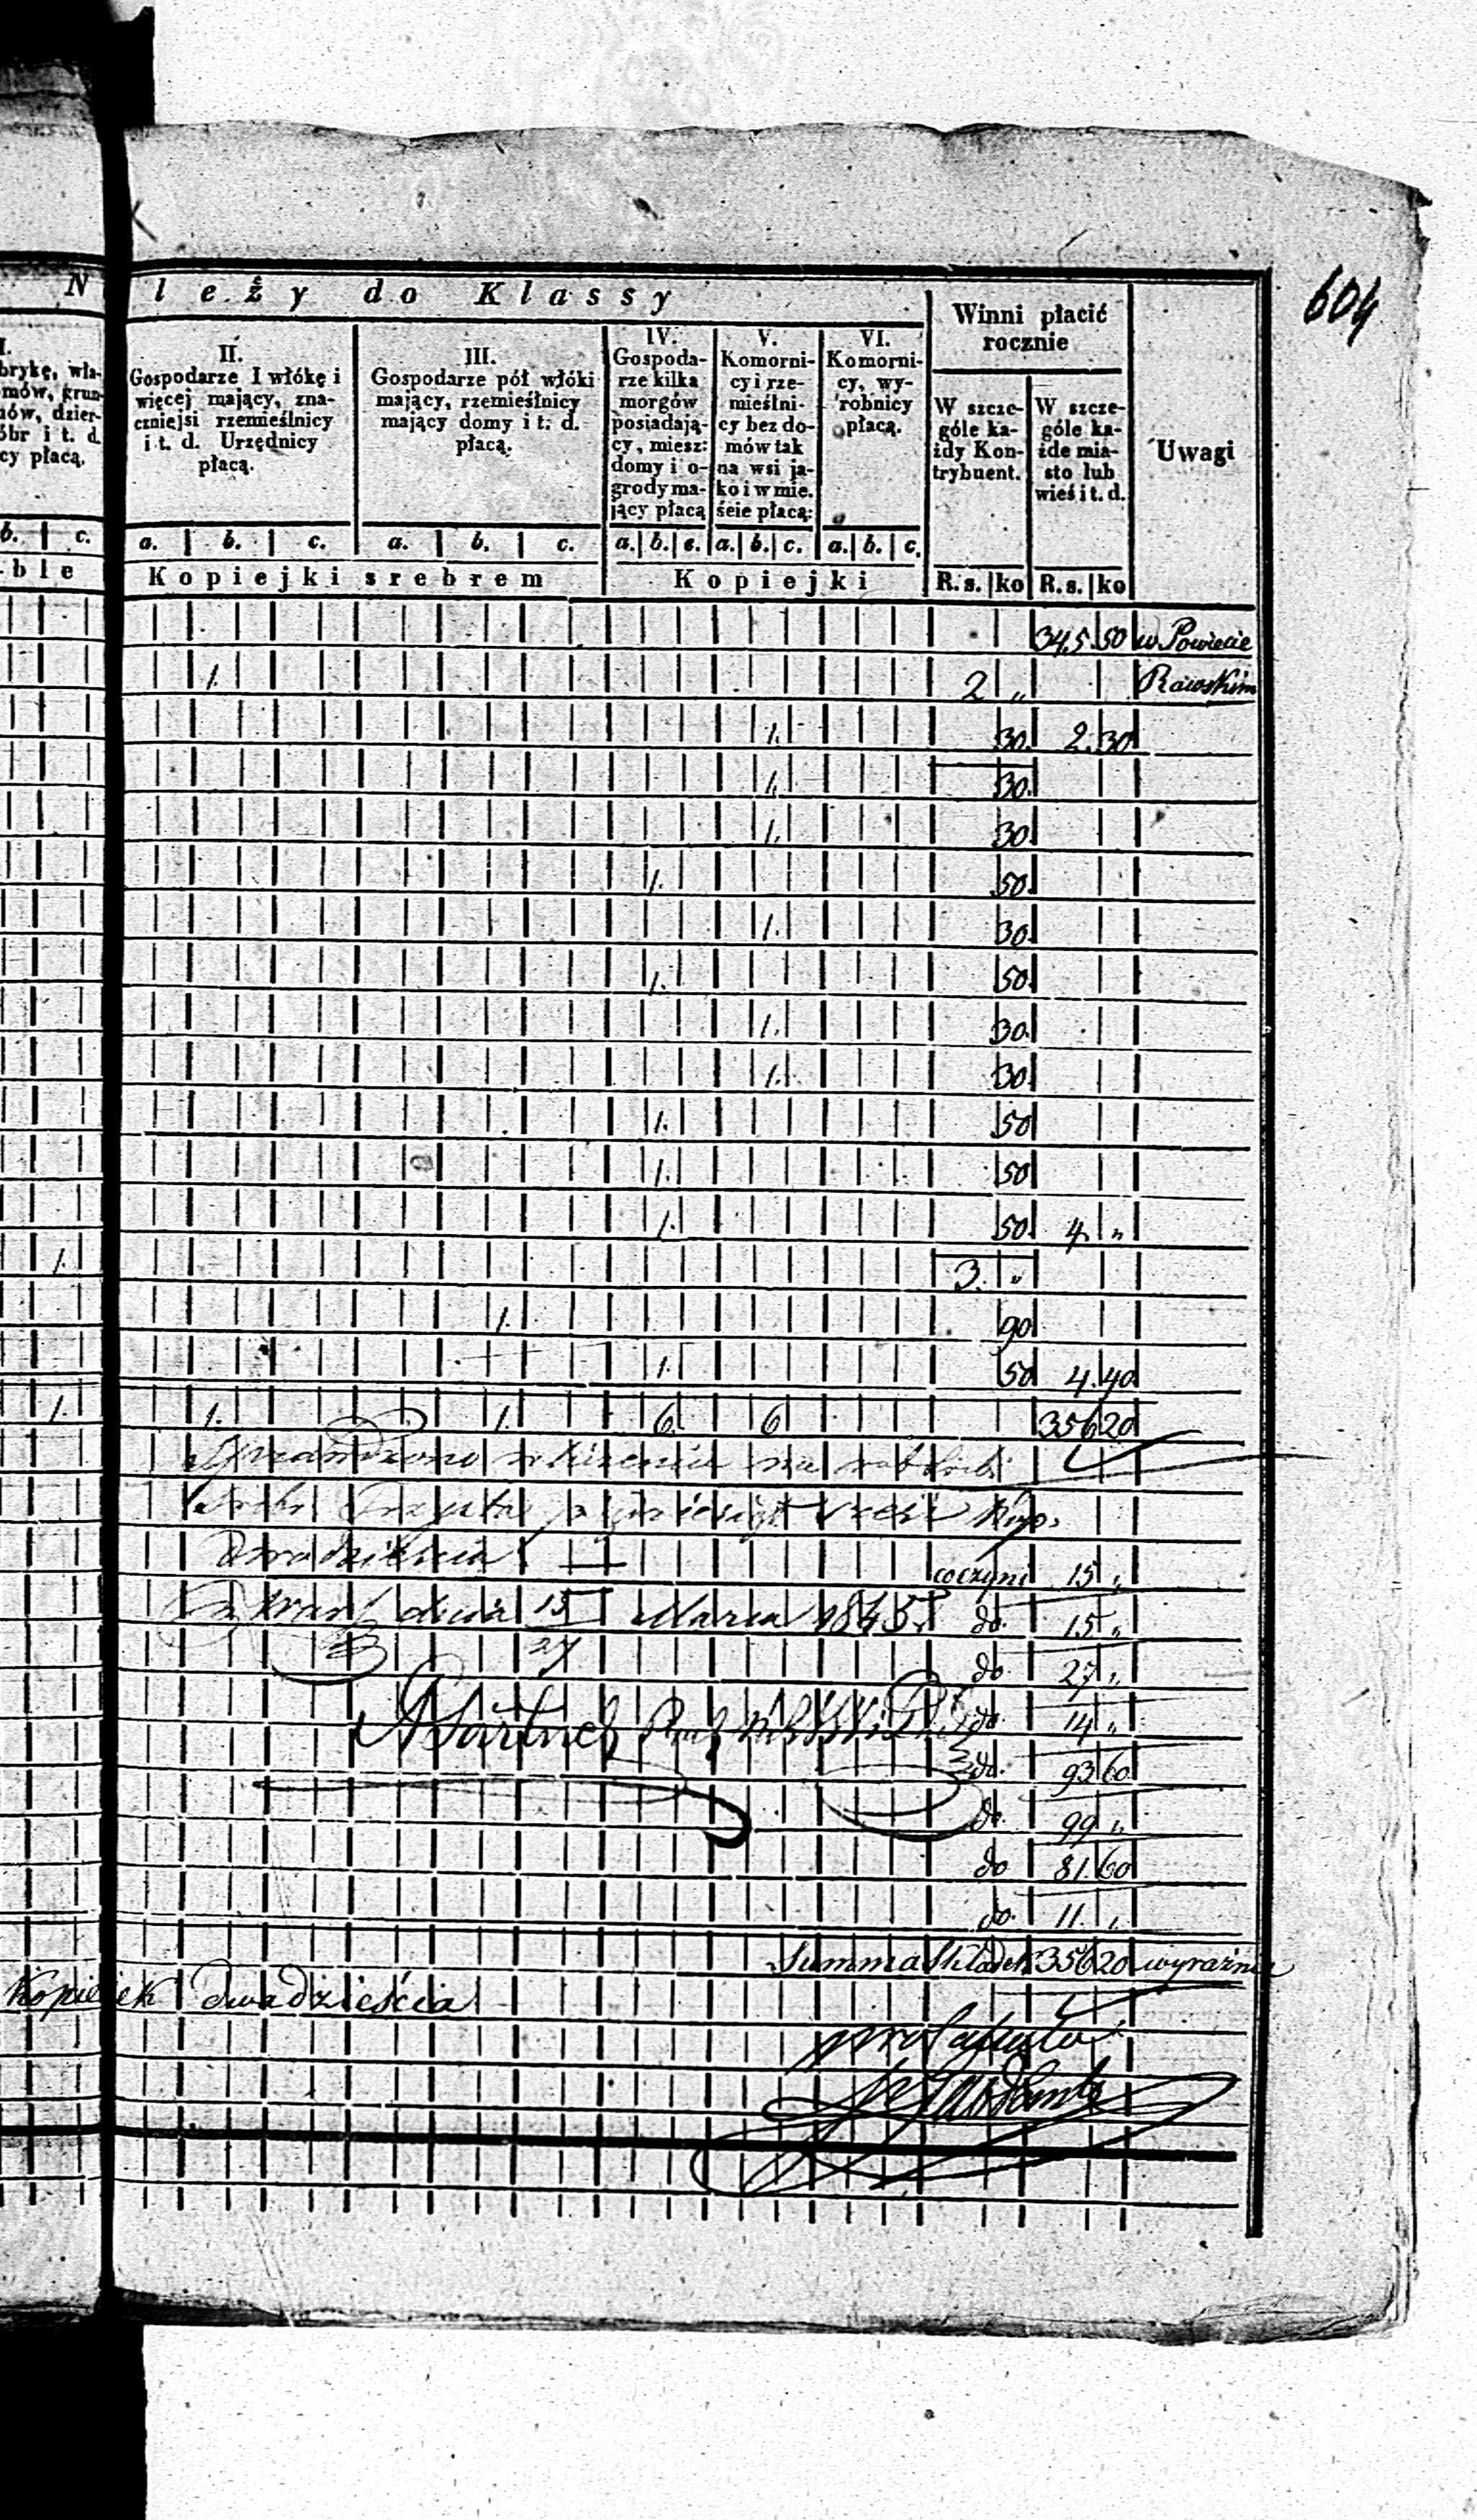 604
N leży do Klassy
Winni płacić
rocznie
Uwagi
I.
brykę, wła-
mów, grun-
nów, dzier-
óbr i t. d.
cy płacą.
II.
Gospodarze I włókę i
więcej mający, zna-
czniejsi rzemieślnicy
i t. d. Urzędnicy
płacą.
III.
Gospodarze pół włóki
mający, rzemieślnicy
mający domy i t. d.
płacą.
IV.
Gospoda-
rze kilka
morgów
posiadają-
cy, miesz:
domy i o-
grody ma-
jący płacą
V.
Komorni-
cy i rze-
mieślni-
cy bez do-
mów tak
na wsi ja-
ko i w mie.
ście płacą:
VI.
Komorni-
cy, wy-
robnicy
płacą.
W szcze-
góle ka-
żdy Kon-
trybuent.
W szcze-
góle ka-
żde mia-
sto lub
wieś i t. d.
b. c. a. b. c. a. b. c. a. b. c. a. b. c. a. b. c.
ble Kopiejki srebrem Kopiejki R.s. ko R.s. ko
345 50 w Powiecie
1. 2 „ Rawskim
1. 30. 2. 30
1. 30.
1. 30
1. 50.
1. 30.
1. 50.
1. 30.
1. 30
1. 50
1. 50
1. 50. 4. „
1. 3. „
1. 90
1. 50 4. 40
1. 1. 1. 6. 6 356 20
Sprawdzono
Trzysta pięćdziesiąt sześć Kop.
Dwadzieścia
coczyni 15 „
dnia 15/27 Marca 1845. do 15 „
do. 27 „
do. 14 „
do. 93 60
do. 99 „
do 81. 60
do. 11. „
Summa Składek 356 20 wyraźnie
Kopiejek dwadzieścia